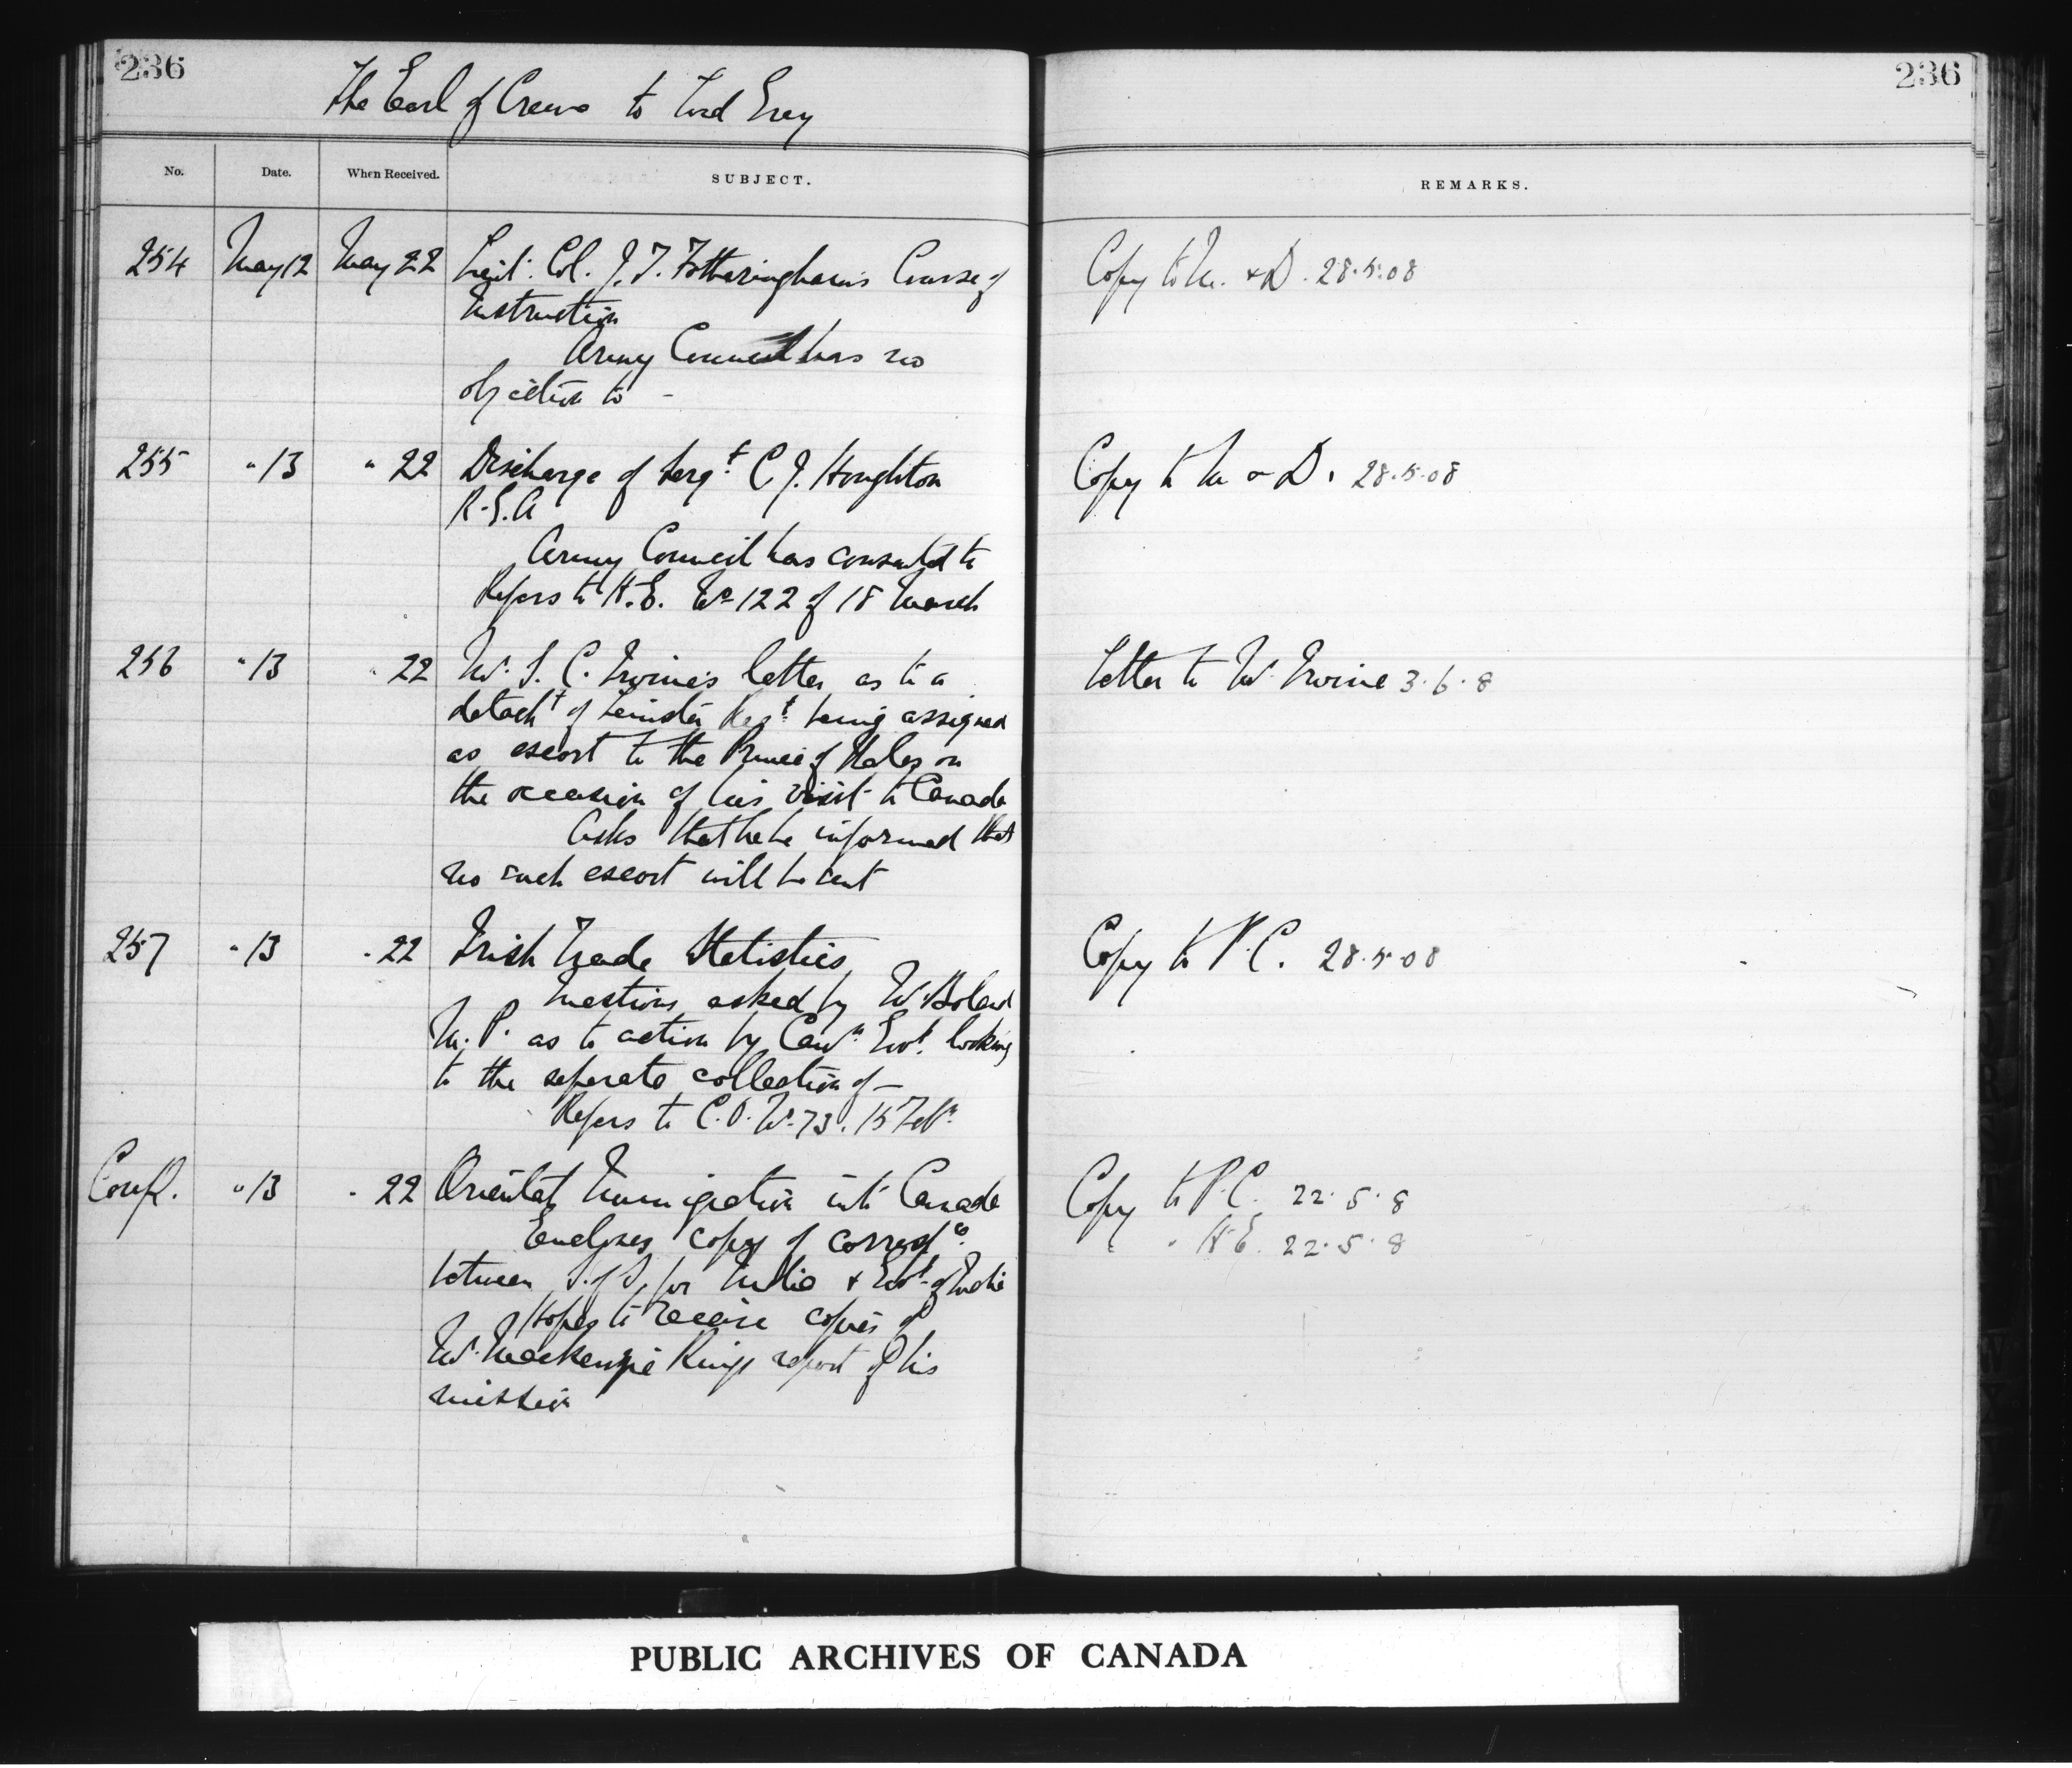 236
236
The Earl of Crewe to Lord Grey
No. Date. When Received. SUBJECT. REMARKS.
254 May 12 May 22 Lieut. Col. J. T. Fotheringham's Course of Copy to M. & D. 28.5.08
Instruction
Army Council has no
objection to -
255 " 13 " 22 Discharge of Sergt. C. J. Houghton Copy to M & D. 28.5.08
R.G.A
Army Council has consented to
Refers to H.E. No 122 of 18 March
256 " 13 " 22 Mr. S. C. Irvine's letter as to a Letter to Mr. Irvine 3.6.8
detacht of Leinster Regt. being assigned
as escort to the Prince of Wales on
the occasion of his visit to Canada
Asks that he be informed that
no such escort will be sent
257 " 13 " 22 Irish Trade Statistics Copy to P.C. 28.5.08
Questions asked by Mr. Boland
M.P. as to action by Cann. Govt. looking
to the separate collection of -
Refers to C.O. No. 73. 15 Feby.
Confl. " 13 " 22 Oriental Immigration into Canada Copy to P.C. 22.5.8
Encloses copy of correspce. " H.E. 22.5.8
between S. of S. for India & Govt. of India
Hopes to receive copies of
Mr. Mackenzie King's report of his
mission
PUBLIC ARCHIVES OF CANADA